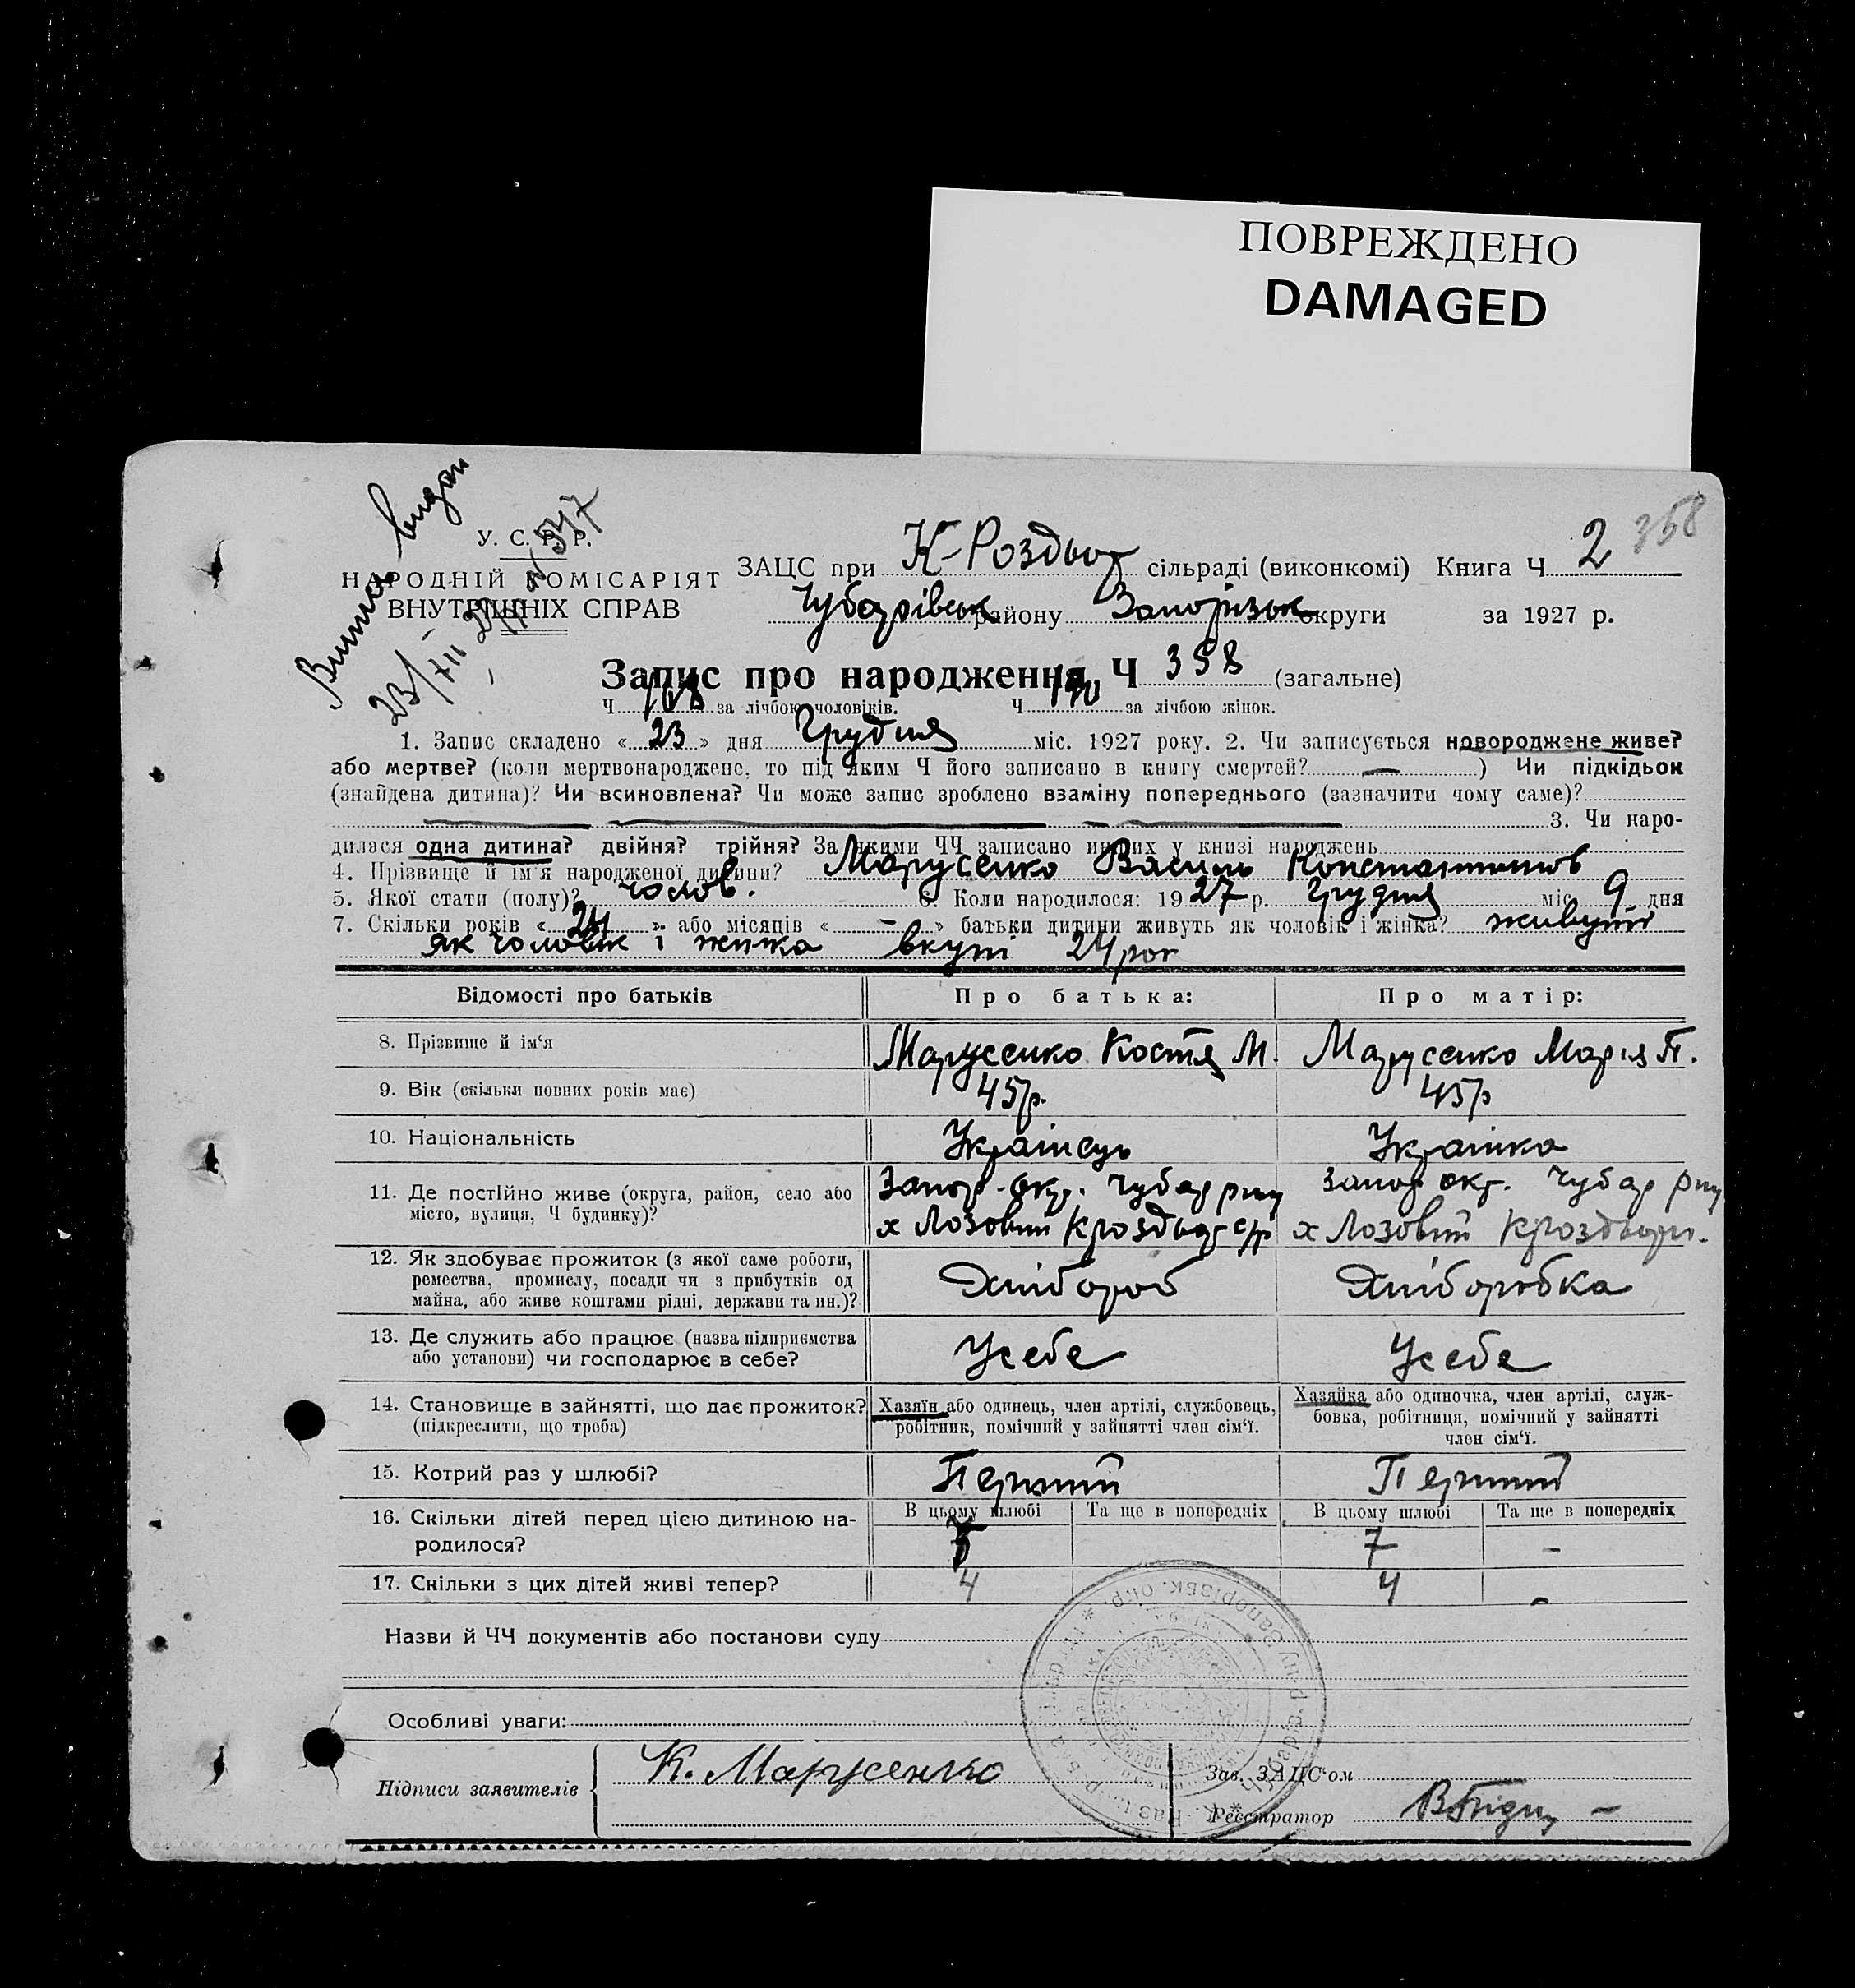 ПОВРЕЖДЕНО
DAMAGED
358
Витяг видан
23/XII 27
У. С. Р. Р.
НАРОДНІЙ КОМІСАРІЯТ
ВНУТРІШНІХ СПРАВ
ЗАЦС при К-Роздор сільраді (виконкомі) Книга Ч 2
Чубарівськ району Запорізьк округи за 1927 р.
Запис про народження Ч 358 (загальне)
Ч 168 за лічбою чоловіків. Ч 190 за лічбою жінок.
1. Запис складено « 23 » дня Грудня міс. 1927 року. 2. Чи записується новороджене живе?
або мертве? (коли мертвонароджене, то під яким Ч його записано в книгу смертей? — ) Чи підкідьок
(знайдена дитина)? Чи всиновлена? Чи може запис зроблено взаміну попереднього (зазначити чому саме)?
3. Чи наро-
дилася одна дитина? двійня? трійня? За якими ЧЧ записано инших у книзі народжень
4. Прізвище й ім'я народженої дитини? Марусенко Василь Константинов
5. Якої стати (полу)? чолов. 6. Коли народилося: 1927 р. Грудня міс. 9 дня
7. Скільки років « 24 » або місяців « — » батьки дитини живуть як чоловік і жінка? живуть
як чоловік і жінка вкупі 24 рок
Відомості про батьків Про батька: Про матір:
8. Прізвище й ім'я Марусенко Костя М. Марусенко Марія П.
9. Вік (скільки повних років має) 45 р. 45 р
10. Національність Українець Українка
11. Де постійно живе (округа, район, село або Запор. окр. Чубар рну Запор окр. Чубар рну
місто, вулиця, Ч будинку)? х Лозовий Кроздорс/р х Лозовий Кроздорс.
12. Як здобуває прожиток (з якої саме роботи,
ремества, промислу, посади чи з прибутків од Хлібороб Хліборобка
майна, або живе коштами рідні, держави та ин.)?
13. Де служить або працює (назва підприємства Усебе Усебе
або установи) чи господарює в себе?
14. Становище в зайнятті, що дає прожиток? Хазяїн або одинець, член артілі, службовець, Хазяйка або одиночка, член артілі, служ-
(підкреслити, що треба) робітник, помічний у зайнятті член сім'ї. бовка, робітниця, помічний у зайнятті
член сім'ї.
15. Котрий раз у шлюбі? Перший Перший
16. Скільки дітей перед цією дитиною на- В цьому шлюбі Та ще в попередніх В цьому шлюбі Та ще в попередніх
родилося? 7 7 –
17. Скільки з цих дітей живі тепер? 4 4 –
Назви й ЧЧ документів або постанови суду
Особливі уваги:
Підписи заявителів К. Марусенко Зав. ЗАЦС'ом
Реєстратор